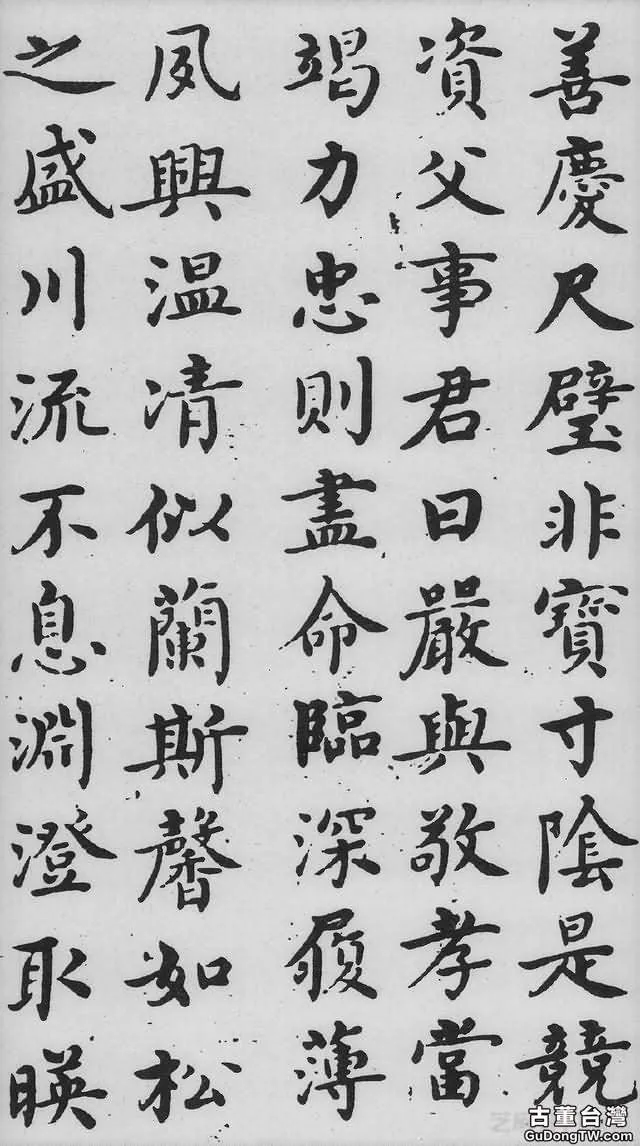 善慶尺璧非寶寸陰是競
資父事君曰嚴與敬孝當
竭力忠則盡命臨深履薄
夙興温凊似蘭斯馨如松
之盛川流不息淵澄取暎
古董台灣
GuDongTW.com